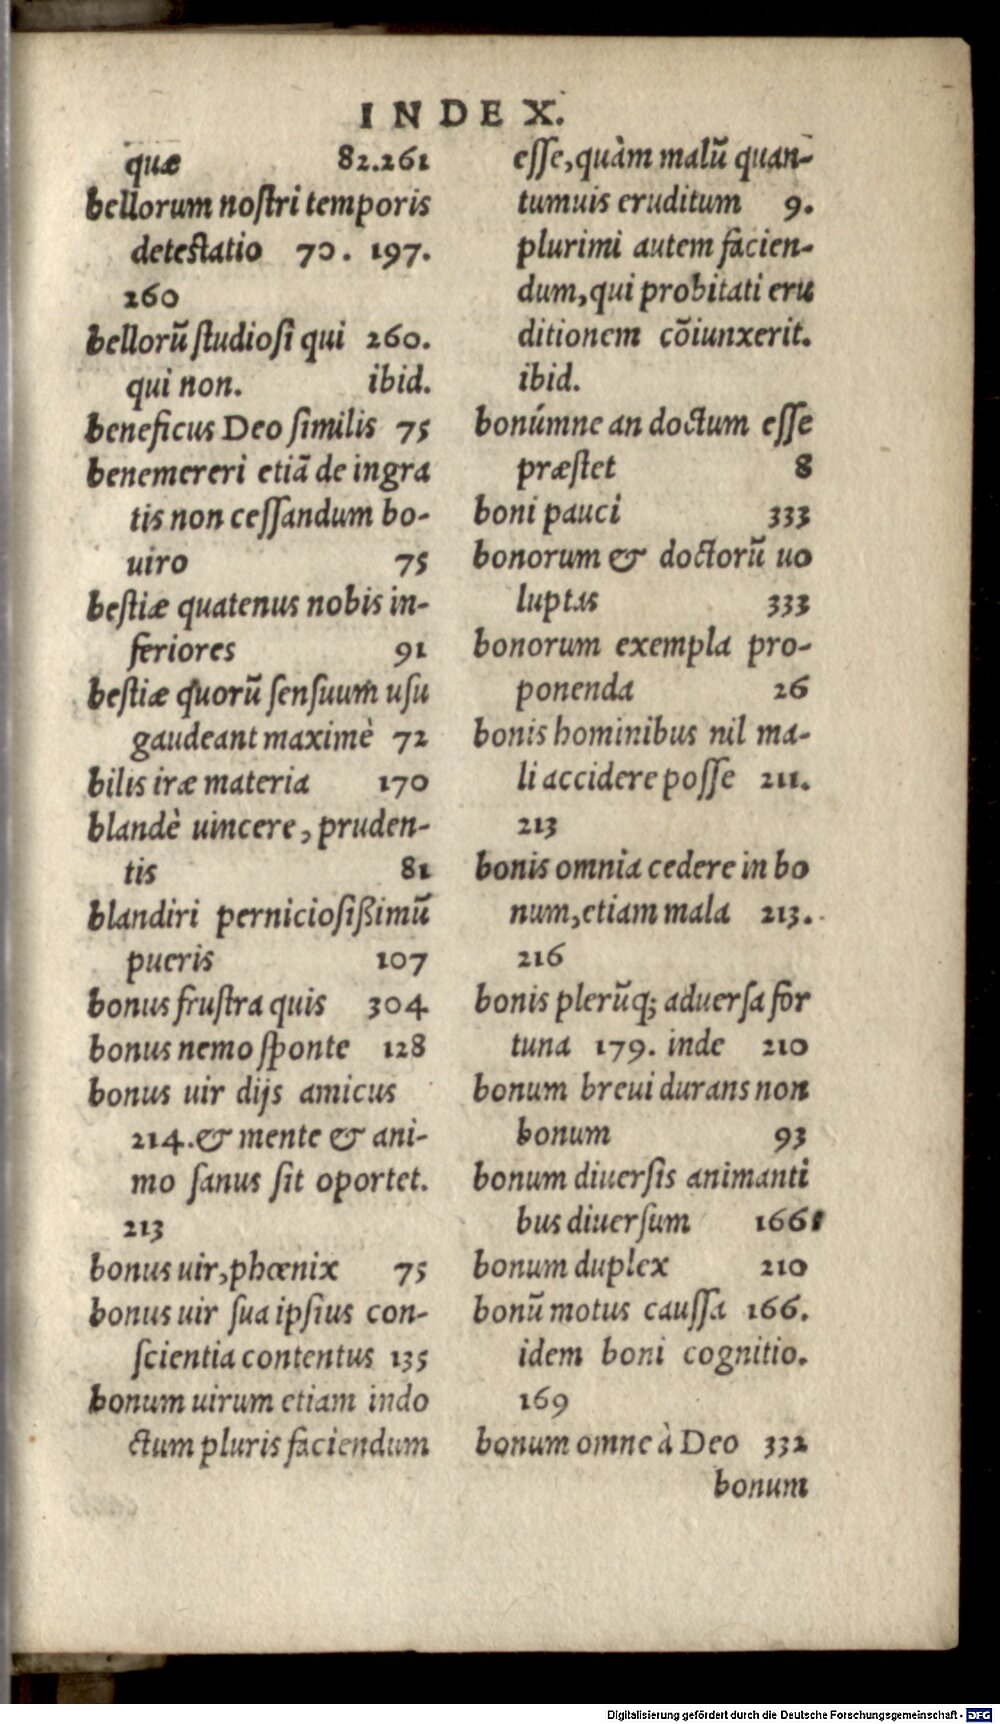 INDEX.
quæ 82.261
bellorum nostri temporis
detestatio 70. 197.
260
bellorũ studiosi qui 260.
qui non. ibid.
beneficus Deo similis 75
benemereri etiã de ingra
tis non cessandum bo-
uiro 75
bestiæ quatenus nobis in-
feriores 91
bestiæ quorũ sensuum usu
gaudeant maximè 72
bilis iræ materia 170
blandè uincere, pruden-
tis 81
blandiri perniciosißimũ
pueris 107
bonus frustra quis 304
bonus nemo sponte 128
bonus uir dijs amicus
214.& mente & ani-
mo sanus sit oportet.
213
bonus uir,phœnix 75
bonus uir sua ipsius con-
scientia contentus 135
bonum uirum etiam indo
ctum pluris faciendum
esse,quàm malũ quan-
tumuis eruditum 9.
plurimi autem facien-
dum,qui probitati eru
ditionem cõiunxerit.
ibid.
bonúmne an doctum esse
præstet 8
boni pauci 333
bonorum & doctorũ uo
luptas 333
bonorum exempla pro-
ponenda 26
bonis hominibus nil ma-
li accidere posse 211.
213
bonis omnia cedere in bo
num,etiam mala 213.
216
bonis plerũq; aduersa for
tuna 179. inde 210
bonum breui durans non
bonum 93
bonum diuersis animanti
bus diuersum 166
bonum duplex 210
bonũ motus caussa 166.
idem boni cognitio.
169
bonum omne à Deo 332
bonum
Digitalisierung gefördert durch die Deutsche Forschungsgemeinschaft - DFG